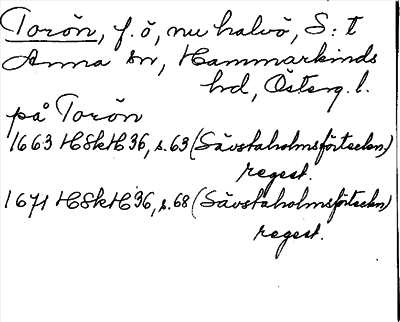 Torön, f. ö, nu halvö, S:t
Anna sn, Hammarkinds
hd, Österg. l.
på Torön
1663 HSkH 36, s. 63 (Sävstaholmsförteckn.)
regest.
1671 HSkH 36, s. 68 (Sävstaholmsförteckn.)
regest.